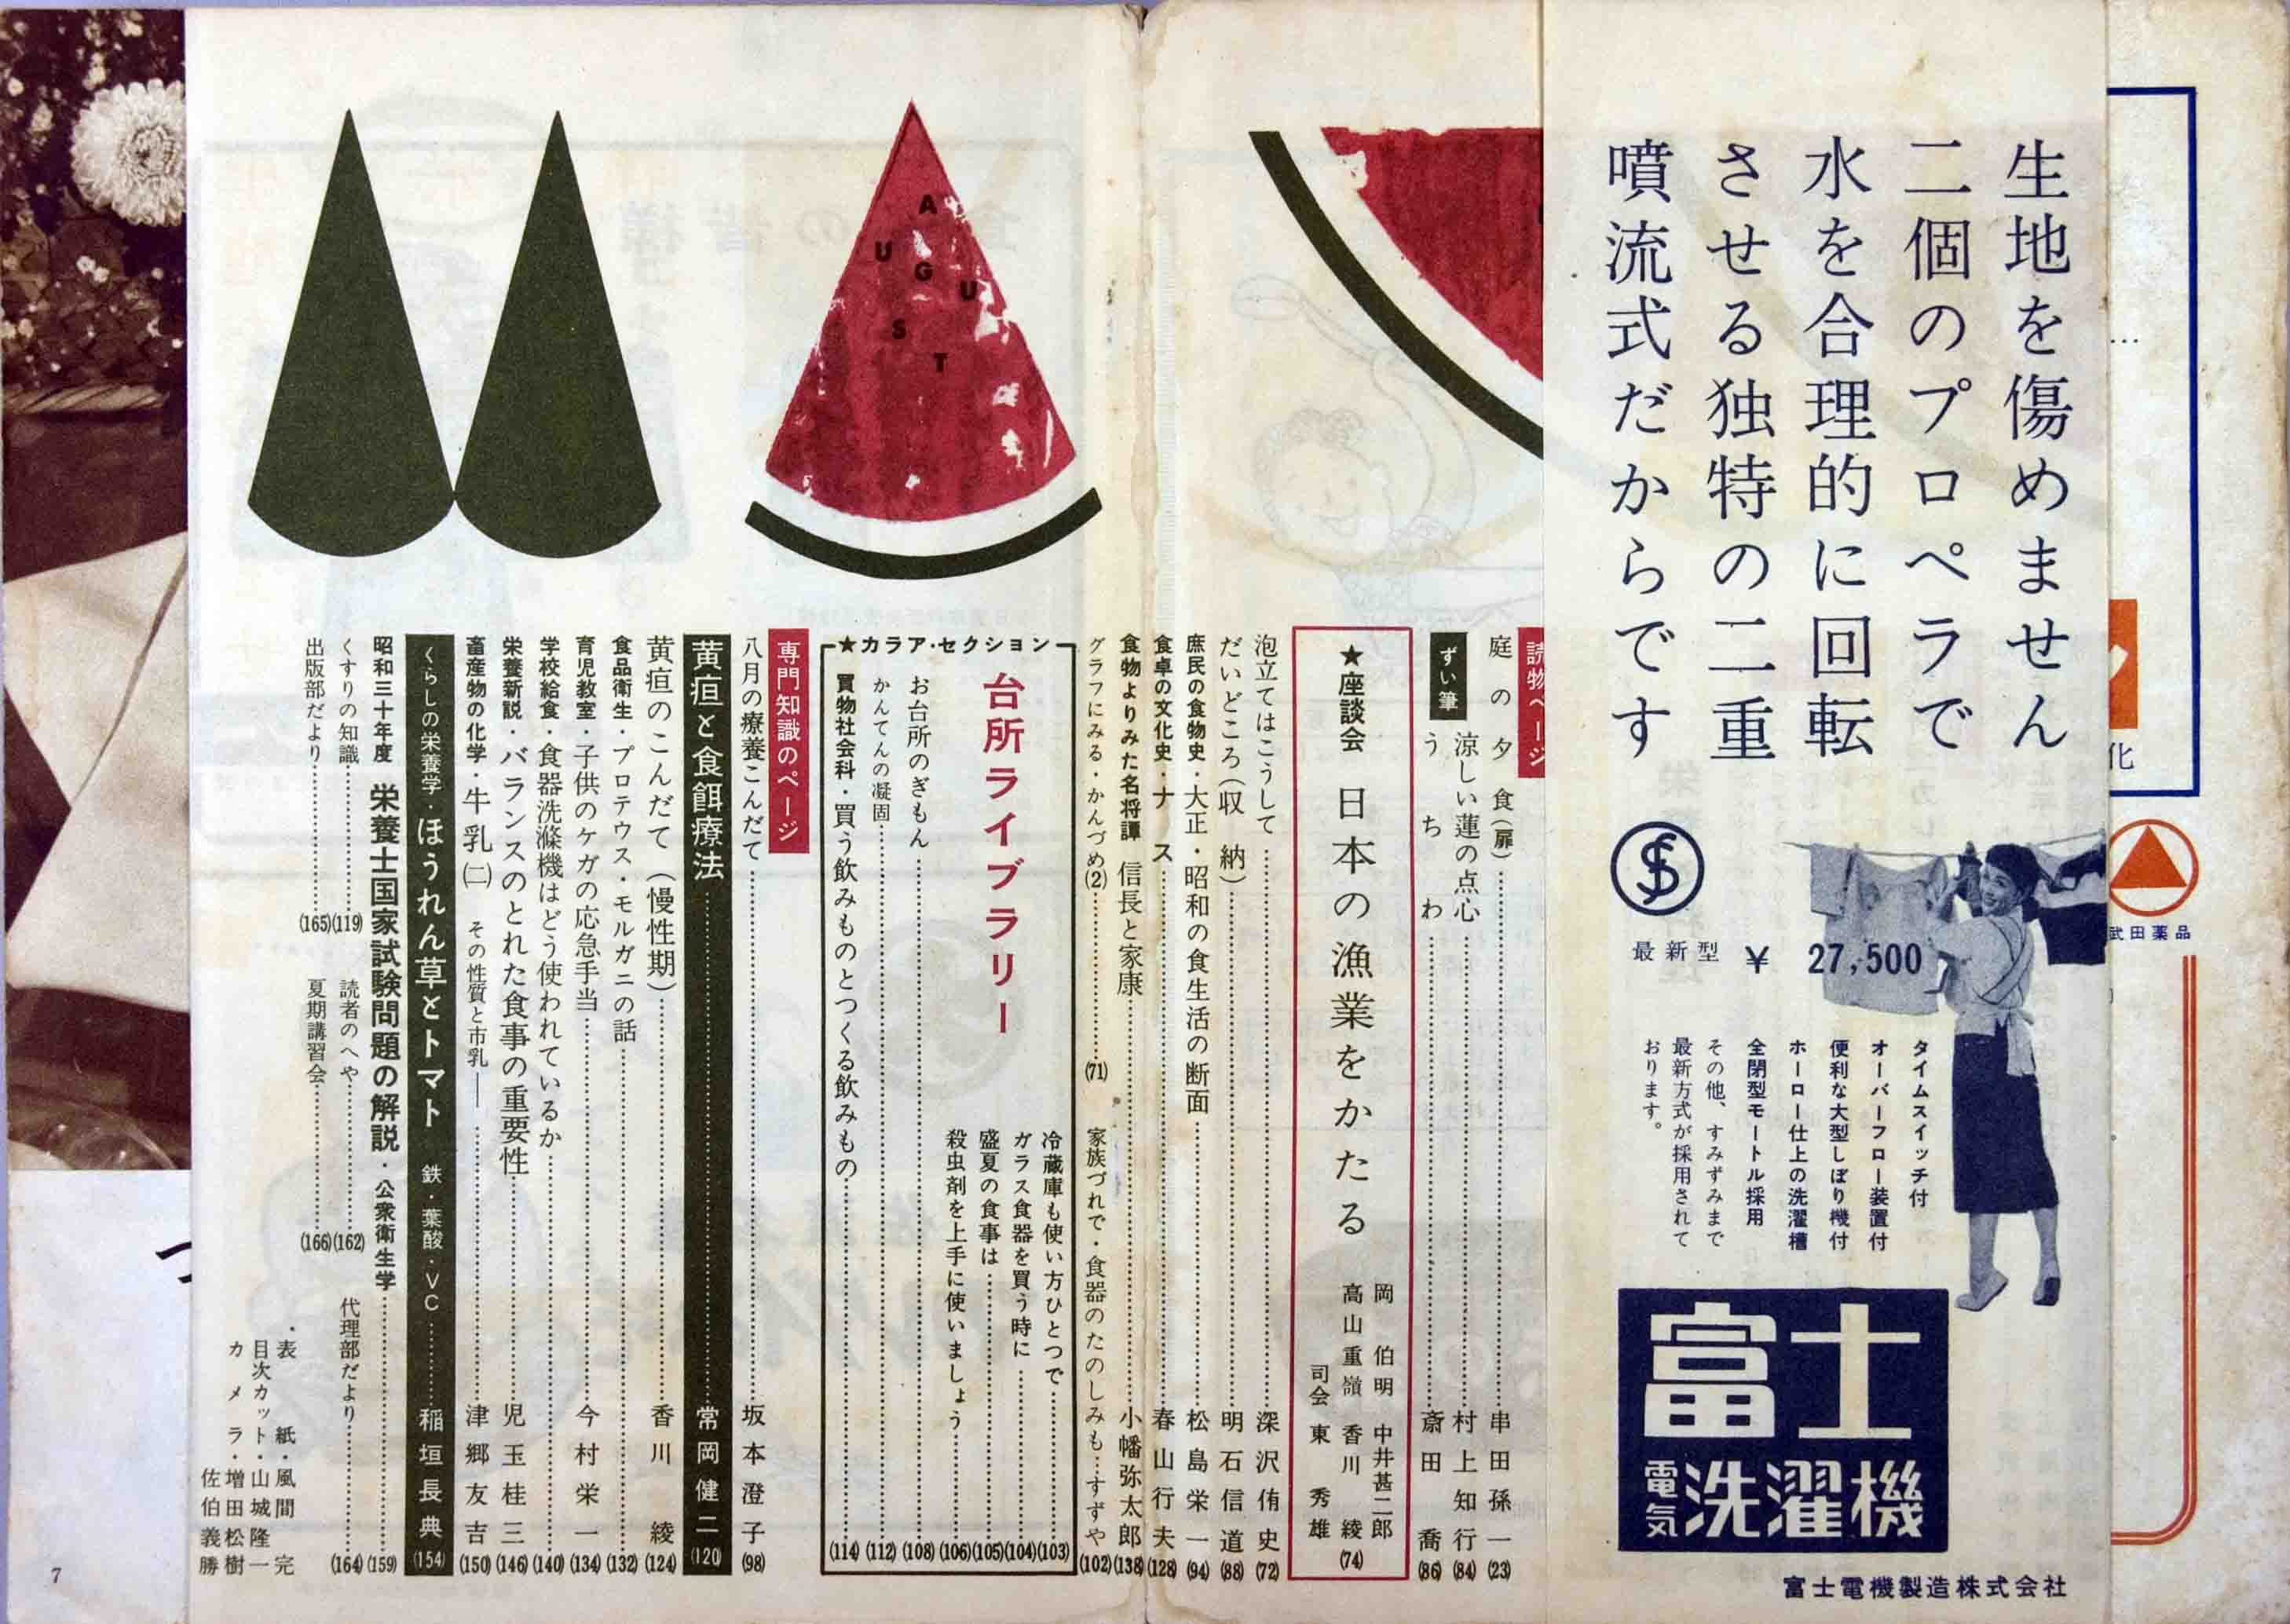 生地を傷めません
二個のプロペラで
水を合理的に回転
させる独特の二重
噴流式だからです
最新型 ¥ 27,500
タイムスイッチ付
オーバーフロー装置付
便利な大型しぼり機付
ホーロー仕上の洗濯槽
全閉型モートル採用
その他、すみずみまで
最新方式が採用されて
おります。
富士
電気洗濯機
富士電機製造株式会社
化
武田薬品
読物ページ
庭の夕食(扉)……串田孫一(23)
ずい筆
涼しい蓮の点心……村上知行(84)
うちわ……斎田喬(86)
★座談会 日本の漁業をかたる
岡伯明 中井甚二郎
高山重嶺 香川綾
司会 東秀雄
(74)
泡立てはこうして……深沢侑史(72)
だいどころ(収納)……明石信道(88)
庶民の食物史・大正・昭和の食生活の断面……松島栄一(94)
食卓の文化史・ナス……春山行夫(128)
食物よりみた名将譚 信長と家康……小幡弥太郎(138)
グラフにみる・かんづめ(2)……(71) 家族づれで・食器のたのしみも…すずや(102)
★カラア・セクション
台所ライブラリー
冷蔵庫も使い方ひとつで……(103)
ガラス食器を買う時に……(104)
盛夏の食事は……(105)
殺虫剤を上手に使いましょう……(106)
お台所のぎもん……(108)
かんてんの凝固……(112)
買物社会科・買う飲みものとつくる飲みもの……(114)
AUGUST
専門知識のページ
八月の療養こんだて……坂本澄子(98)
黄疸と食餌療法……常岡健二(120)
黄疸のこんだて(慢性期)……香川綾(124)
食品衛生・プロテウス・モルガニの話……(132)
育児教室・子供のケガの応急手当……今村栄一(134)
学校給食・食器洗滌機はどう使われているか……(140)
栄養新説・バランスのとれた食事の重要性……児玉桂三(146)
畜産物の化学・牛乳(二) その性質と市乳——……津郷友吉(150)
くらしの栄養学・ほうれん草とトマト 鉄・葉酸・VC……稲垣長典(154)
昭和三十年度 栄養士国家試験問題の解説・公衆衛生学……(159)
くすりの知識……(119) 読者のへや……(162) 代理部だより……(164)
出版部だより……(165) 夏期講習会……(166)
・表紙・風間完
目次カット・山城隆一
カメラ・増田松樹
佐伯義勝
7